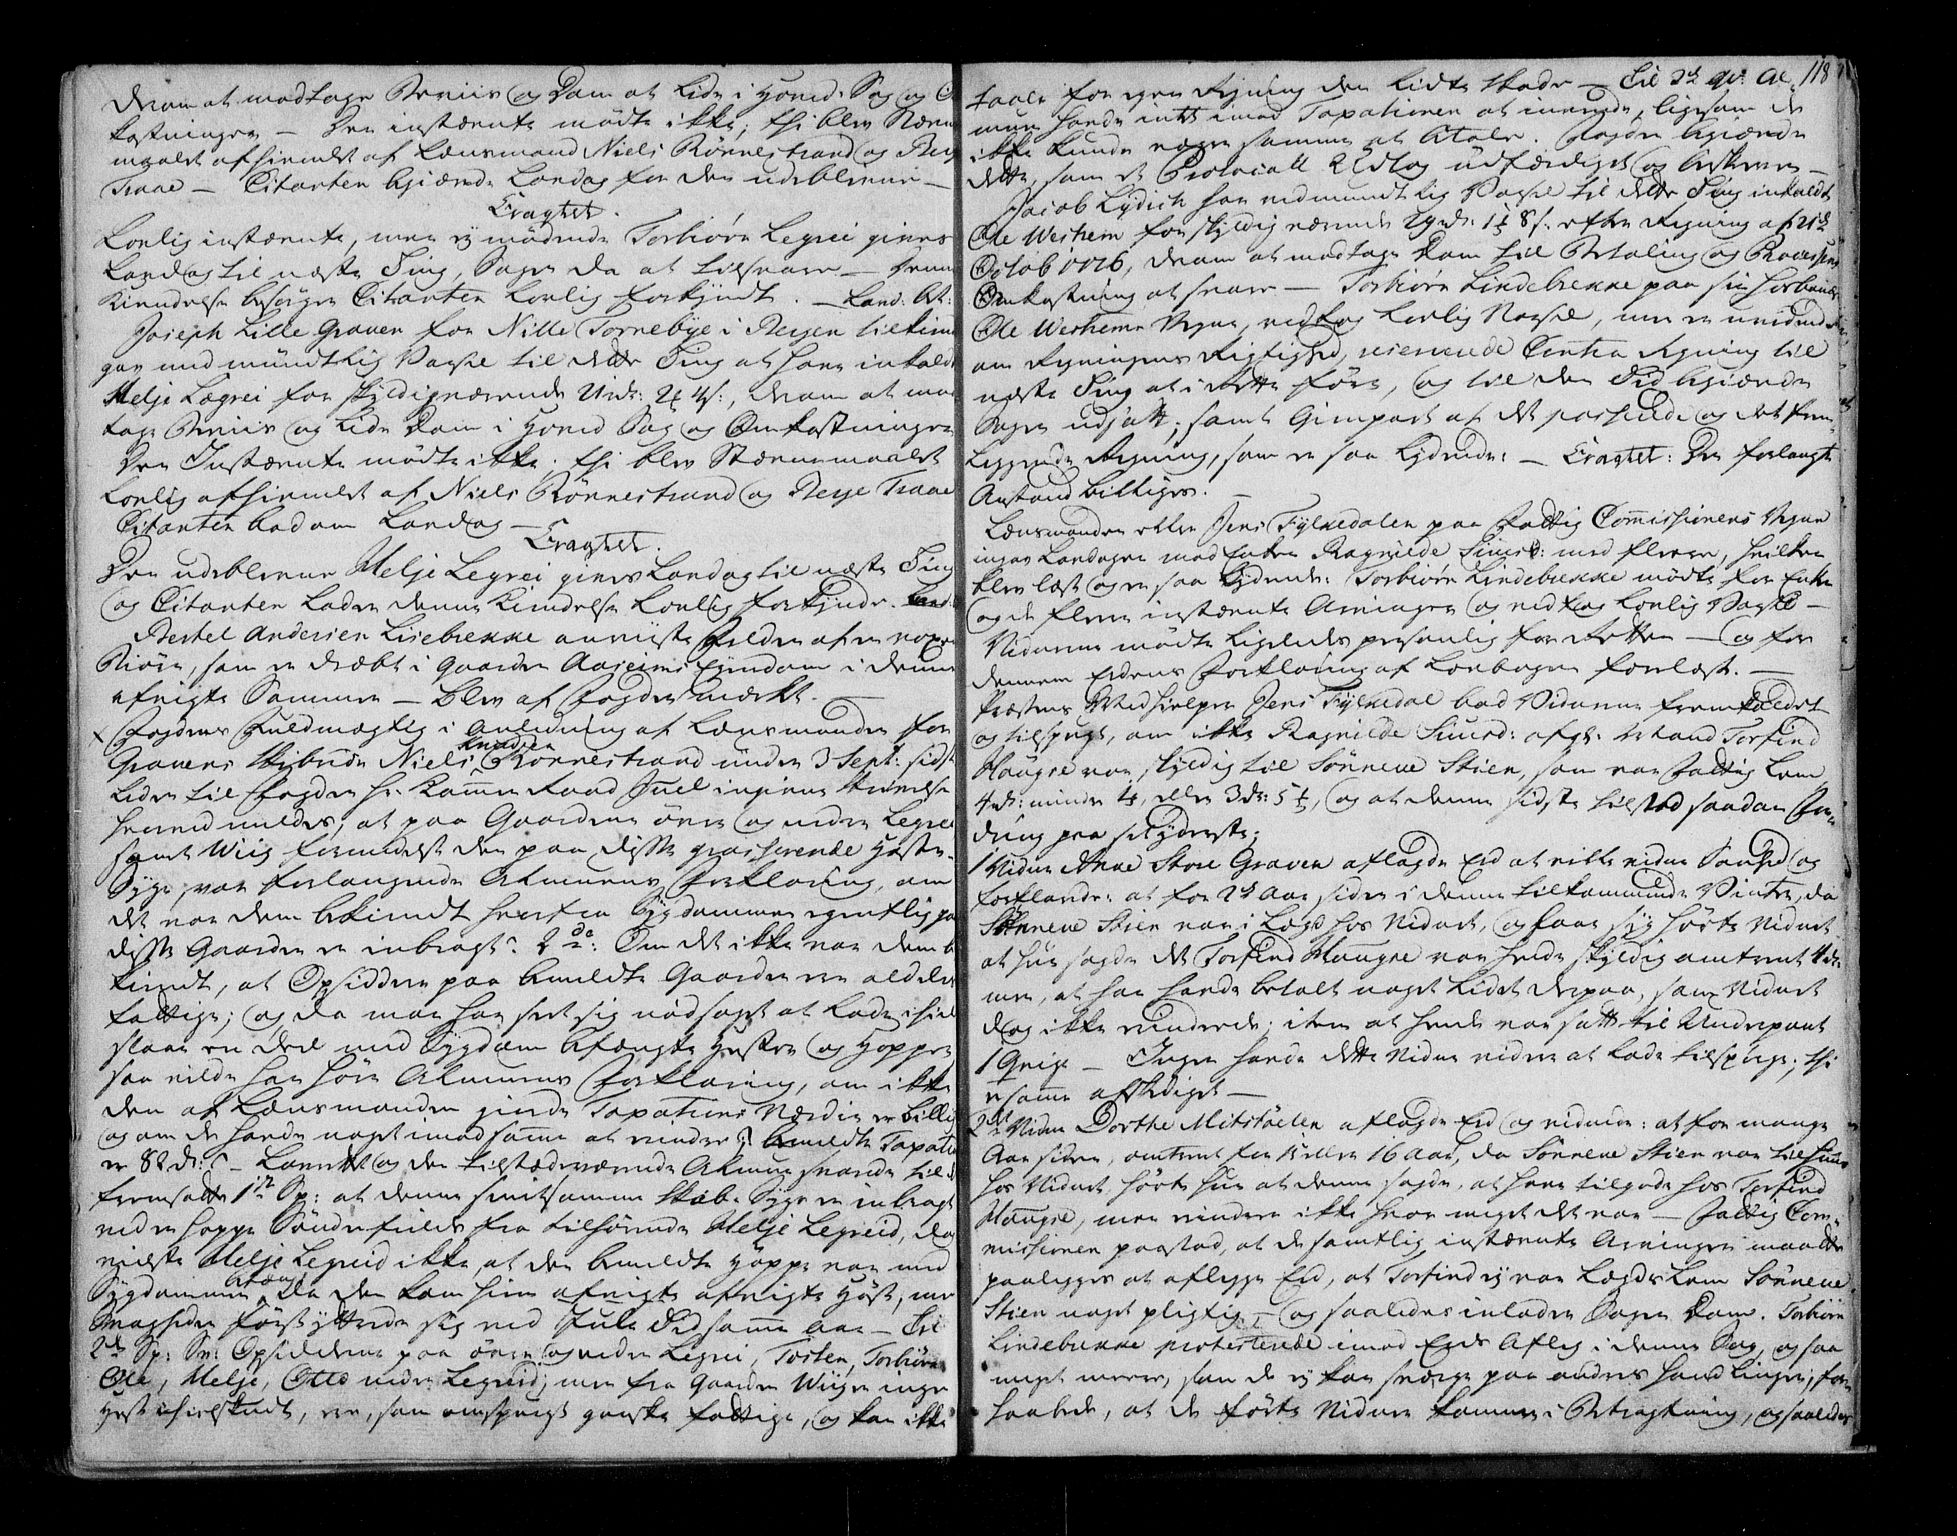 derom at modtage Beviis og Dom at lide i Hoved Sag og
kostninger — Den instævnte mødte ikke; thi blev Stævne
maalet afhiemlet af Lænsmand Niels Rönnestrand og Berge
Traae — Citanten begiærede Laudag for den udeblevne —
Eragtet.
Lovlig instævnte, men ej mødende Torbiörn Legrei gives
Laudag til næste Ting, Sagen da at tilsvare — denne
Kiendelse besørger Citanten lovlig forkyndt. —
Joseph Lille Graven for Nille Tornebye i Bergen tilkiende
gav med mundtlig Varsel til dette Ting at have indkaldt
Helje Legrei for skyldigværende derom at mod
tage Beviis og lide Dom i Hoved Sag og Omkostninger
Den Instævnte mødte ikke; thi blev Stævnemaalet
lovlig afhiemlet af Niels Rönnestrand og Berge Traae
Citanten bad om Laudag —
Eragtet.
Den udeblevne Helje Legrei gives Laudag til næste Ting
og Citanten lader denne Kiendelse lovlig forkynde.
Bertel Andersen Lisebrekke anviiste Felden af en voxen
Biørn, som er dræbt i Gaarden Aaseims Eyendom i denne
afvigte Sommer — blev af Fogden mærket. —
x Fogdens Fuldmægtig i Anledning af Lænsmanden for
Gravens Skibrede Niels Knudsen Rönnestrand under 3 Sept: sidst
leden til Fogden Hr. Kammer Raad Juel ingivne Skrivelse
hvorved meldes, at paa Gaardene øvre og nedre Legrei
samt Wiig formedelst den paa disse grasserende Heste-
Syge, var forlangende Almuens Forklaring, om
det var dem bekiendt hvorfra Sygdommen egentlig paa
disse Gaarder er inbragt? 2do: Om det ikke var dem be
kiendt, at Opsidderne paa bemeldte Gaarder ere aldeles
fattige; og da man har seet sig nødsaget at lade ihiel
slaae en deel med Sygdom befængte Heste og Hopper,
saa vilde han høre Almuens Forklaring, om ikke
den af Lænsmanden giorde Taxations Værdie er billig
og om de havde noget imod samme at erindre? bemeldte Taxation
er 82 dr: — Laurettet og den tilstædeværende Almue svarede til
fremsatte 1te Sp: at denne smitsomme Skab-Syge er inbragt
ved en Hoppe tilhørende Helje Legreid, dog
vidste Helje Legreid ikke, at den bemeldte Hoppe var med
Sygdommen befængt da den kom hiem afvigte afvigte Høst, men
Svagheden først yttrede sig ved Jule Tid samme Aar — Til
2det Sp: Sv: Opsidderne paa øvre og nedre Legrei, Tosten, Torbiörn
Ole, Helje, Otto nedre Legreid; men fra Gaarden Wiigen ingen
Hest ihielskudt, ere, som omspurgt ganske fattige, og kan ikke
118
taale for egen Regning den lidte Skade — Til 3de Qv: Al
muen havde intet imod Taxationen at erindre, ligesom de
ikke kunde negte samme at betale. Fogden begiærede
dette, som et Protocoll Udtog udfærdiget og beskreven —
Jacob Lydich har ved mundtlig Varsel til dette Ting inkaldt
Ole Westrem for skyldig værende 29 dr: 1 8 s. efter Regning af 21de
Octob 1776, derom at modtage Dom til Betaling og Processens
Omkostning at svare — Torbiörn Lindebrekke paa sin
Ole Westrems Vegne, vedtog lovlig Varsel, men er uvidende
om Regningens Rigtighed, reserverede Contra Regning til
næste Ting at i Rette føre, og til den Tid begiærede
Sagen udsatt, samt Gienpart af det passerede og det frem-
liggende Regning, som er saa lydende: — Eragtet: Den forlangte
Anstand billiges. —
Lænsmanden eller Jens Fylkedalen paa Fattig Commissionens Vegne
ingav Laudagen mod Enken Ragnilde Siurs: med flere, hvilken
blev læst og er saa lydende: Torbiörn Lindebrekke mødte for Enken
og de flere instævnte Arvinger og vedtog lovlig Varsel —
Vidnerne mødte ligeledes personlig for Retten — og for
dennem Edens Forklaring af Lovbogen forelæst. —
Præstens Medhielper Jens Fylkedal bad Vidnerne fremkaldet
og tilspurgt, om ikke Ragnilde Siursd: afg: Mand Torfind
Haugse var skyldig til Sönneve Skien, som var Fattig Lem
4 dr: mindre eller 3 dr: 5 , og at denne sidste tilstod saadan For-
dring paa sit yderste;
1 Vidne Anne Store Graven aflagde Eed at ville vidne Sandhed og
forklarede: at for 2de Aar siden i denne tilkommende Vinter, da
Sönneve Skien var i Lægd hos Vidnet, og laae syg hørte Vidnet
at hun sagde det Torfind Haugse var hende skyldig omtrent 4 dr:
men, at han havde betalt noget lidet derpaa, som Vidnet
dog ikke erindrede; item at hende var satt til Underpant
1 Qvige — Ingen havde dette Vidne videre at lade tilspørge; thi
er samme afskediget —
2det Vidne Dorthe Mitstölen aflagde Eed og vidnede: at for mange
Aar siden, omtrent for 15 eller 16 Aar, da Sönneve Skien var tilhuus
hos Vidnet, hørte hun at denne sagde, at have tilgode hos Torfind
Haugse, men erindrer ikke hvor meget det var — Fattig Com-
missionen paastod, at de samtlig instævnte Arvinger maatte
paalegges at aflegge Eed, at Torfind ej var Lægds Lem Sönneve
Skien noget pligtig, — og saaledes inlader Sagen Dom. Torbiörn
Lindebrekke protesterede imod Eeds Aflæg i denne Sag, og saa
meget mere, som de ej kan sværge paa andres Handlinger, for-
haabede, at de førte Vidner kommer i Betragtning, og saaledes